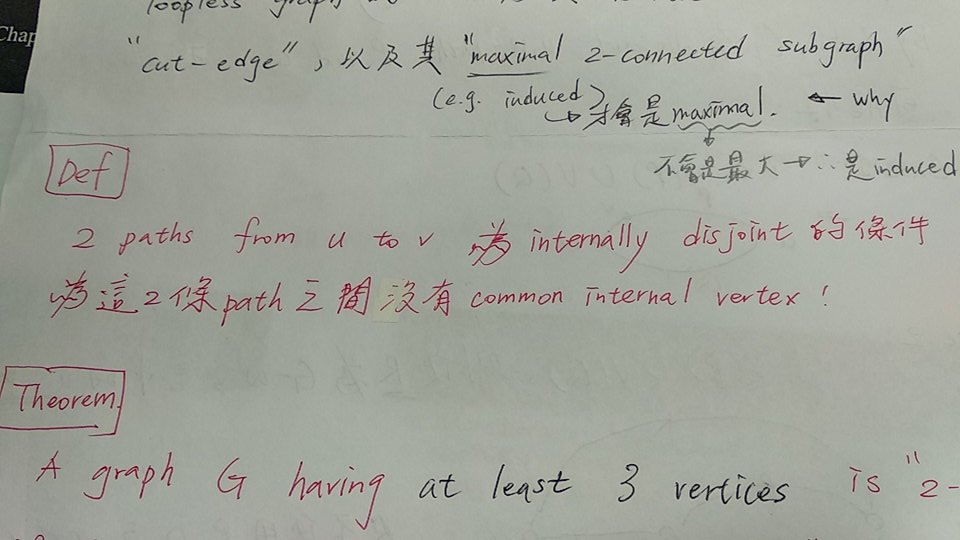 loopless graph
Chap
"cut-edge", 以及其 "maximal 2-connected subgraph"
(e.g. induced) 才會是maximal. ← why
不會是最大 → ∴是induced
Def
2 paths from u to v 為 internally disjoint 的條件
為這2條path之間沒有common internal vertex!
Theorem
A graph G having at least 3 vertices is "2-